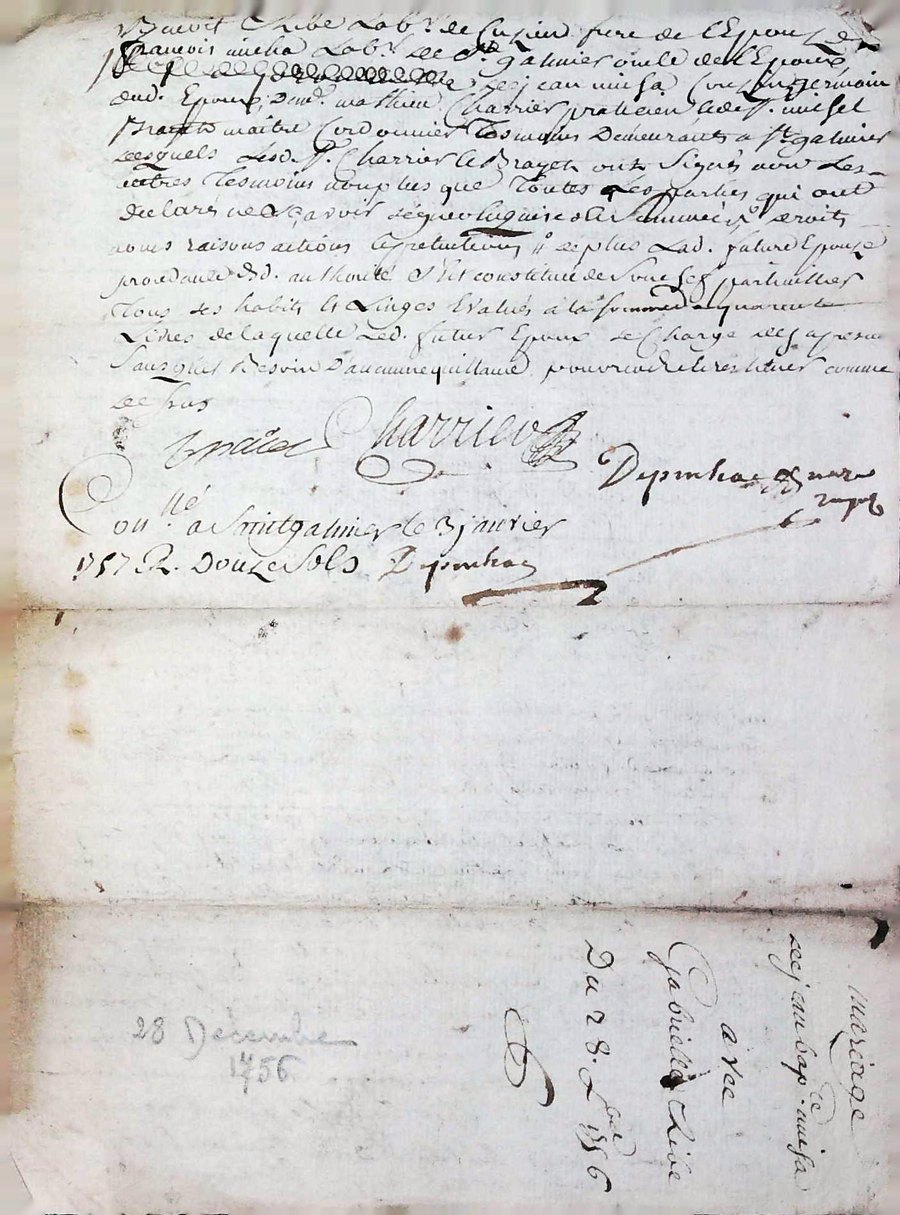 Benoit Thibe Lab.r de Cuzieu frere de l'Epouze
francois micha Lab.r de S.t galmier oncle de l'Epoux
de jean micha Cousin germain
dud. Epoux, De m.e mathieu Charrier praticien & de S.r michel
Brayet maitre Cordonnier Tesmoins Demeurants a S.t galmier
Lesquels Lesd. S.rs Charrier & Brayet ont Signés non Les
autres Tesmoins non plus que Toutes Les parties qui ont
declaré ne Scavoir de ce Enquis & Sommés droits
noms raisons actions & pretentions de plus Lad. future Epouze
procedante de d. authorité S'est constituée de Son chef particullier
Tous ses habits & Linges Evalués a la Somme de quarente
Livres de laquelle Led. futur Epoux se Charge des apresent
Sans qu'il Besoin D'aucune quittance pour rendre & restituer comme
dessus
Brayet Charrier
Depinhac No.re
royal
Con.llé a Saintgalmier le 3 janvier
1757 R. Douze Sols Depinhac
mariage
de jean bap.te micha
avec
Gabrielle Thibe
Du 28. Xbre 1756
28 Décembre
1756